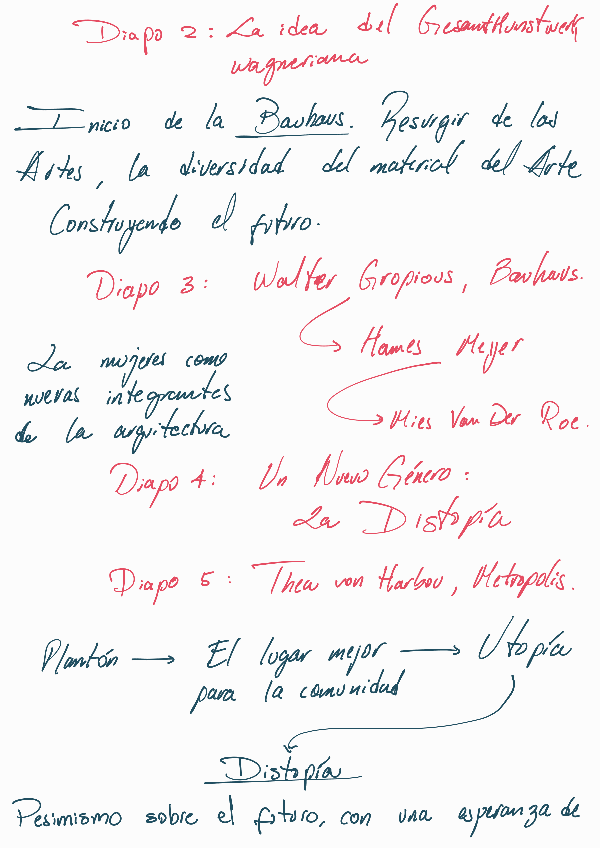 Diapo 2: La idea del Gesantkunstwerk
wagneriana
Inicio de la Bauhaus. Resurgir de las
Artes, la diversidad del material del Arte
Construyendo el futuro.
Diapo 3: Walter Gropious, Bauhaus.
Hames Meyer
La mujeres como
nuevas integrantes
de la arquitectura
Mies Van Der Roe.
Diapo 4: Un Nuevo Género:
La Distopía
Diapo 5: Thea von Harbou, Metropolis.
Plantón → El lugar mejor → Utopía
para la comunidad
Distopía
Pesimismo sobre el futuro, con una esperanza de